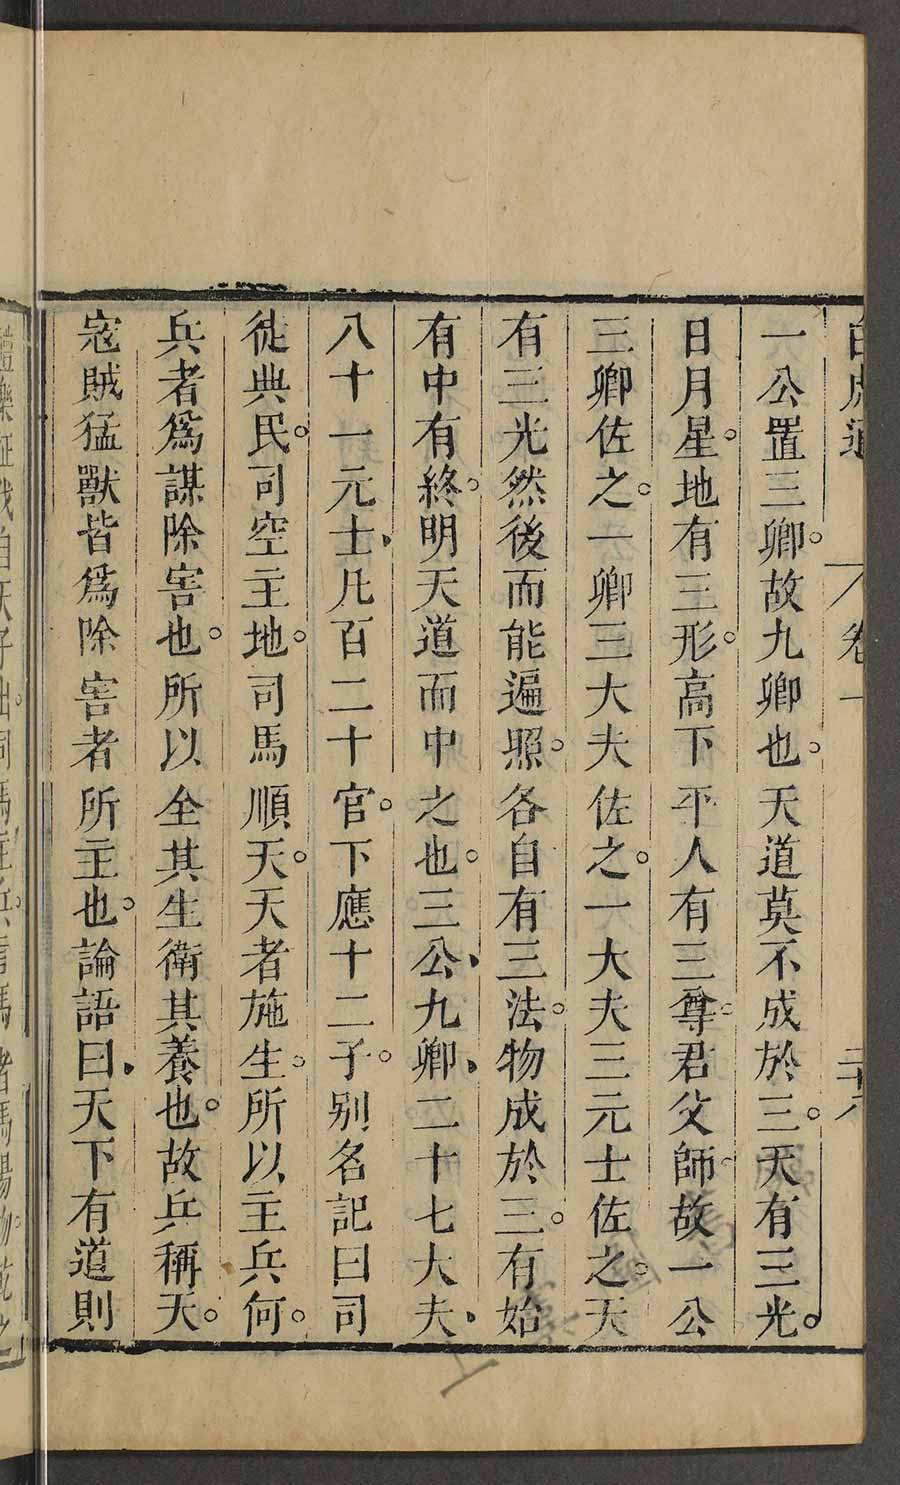 白虎通 卷一 二十六
一公置三卿。故九卿也。天道莫不成於三。天有三光。
日月星。地有三形。高下平人有三尊。君父師。故一公
三卿佐之。一卿三大夫佐之。一大夫三元士佐之。天
有三光然後而能遍照。各自有三法。物成於三。有始
有中有終。明天道而中之也。三公、九卿、二十七大夫、
八十一元士、凡百二十官。下應十二子。别名記曰司
徒典民。司空主地。司馬順天。天者施生。所以主兵何。
兵者爲謀除害也。所以全其生衛其養也。故兵稱天。
寇賊猛獸皆爲除害者所主也。論語曰、天下有道則